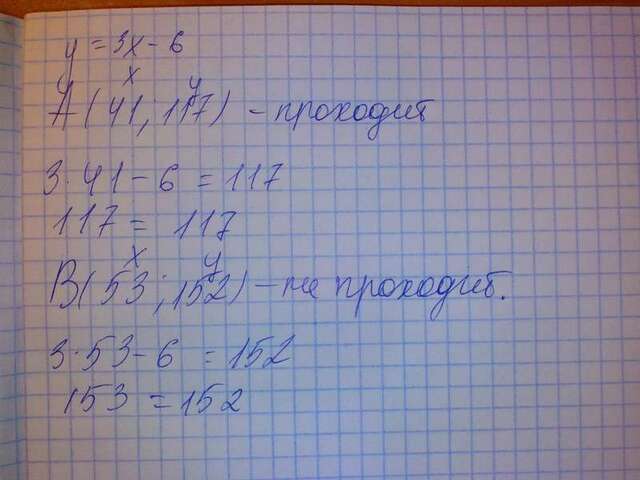 y = 3x - 6
x y
A(41; 117) - проходит
3·41 - 6 = 117
117 = 117
x y
B(53; 152) - не проходит.
3·53 - 6 = 152
153 = 152